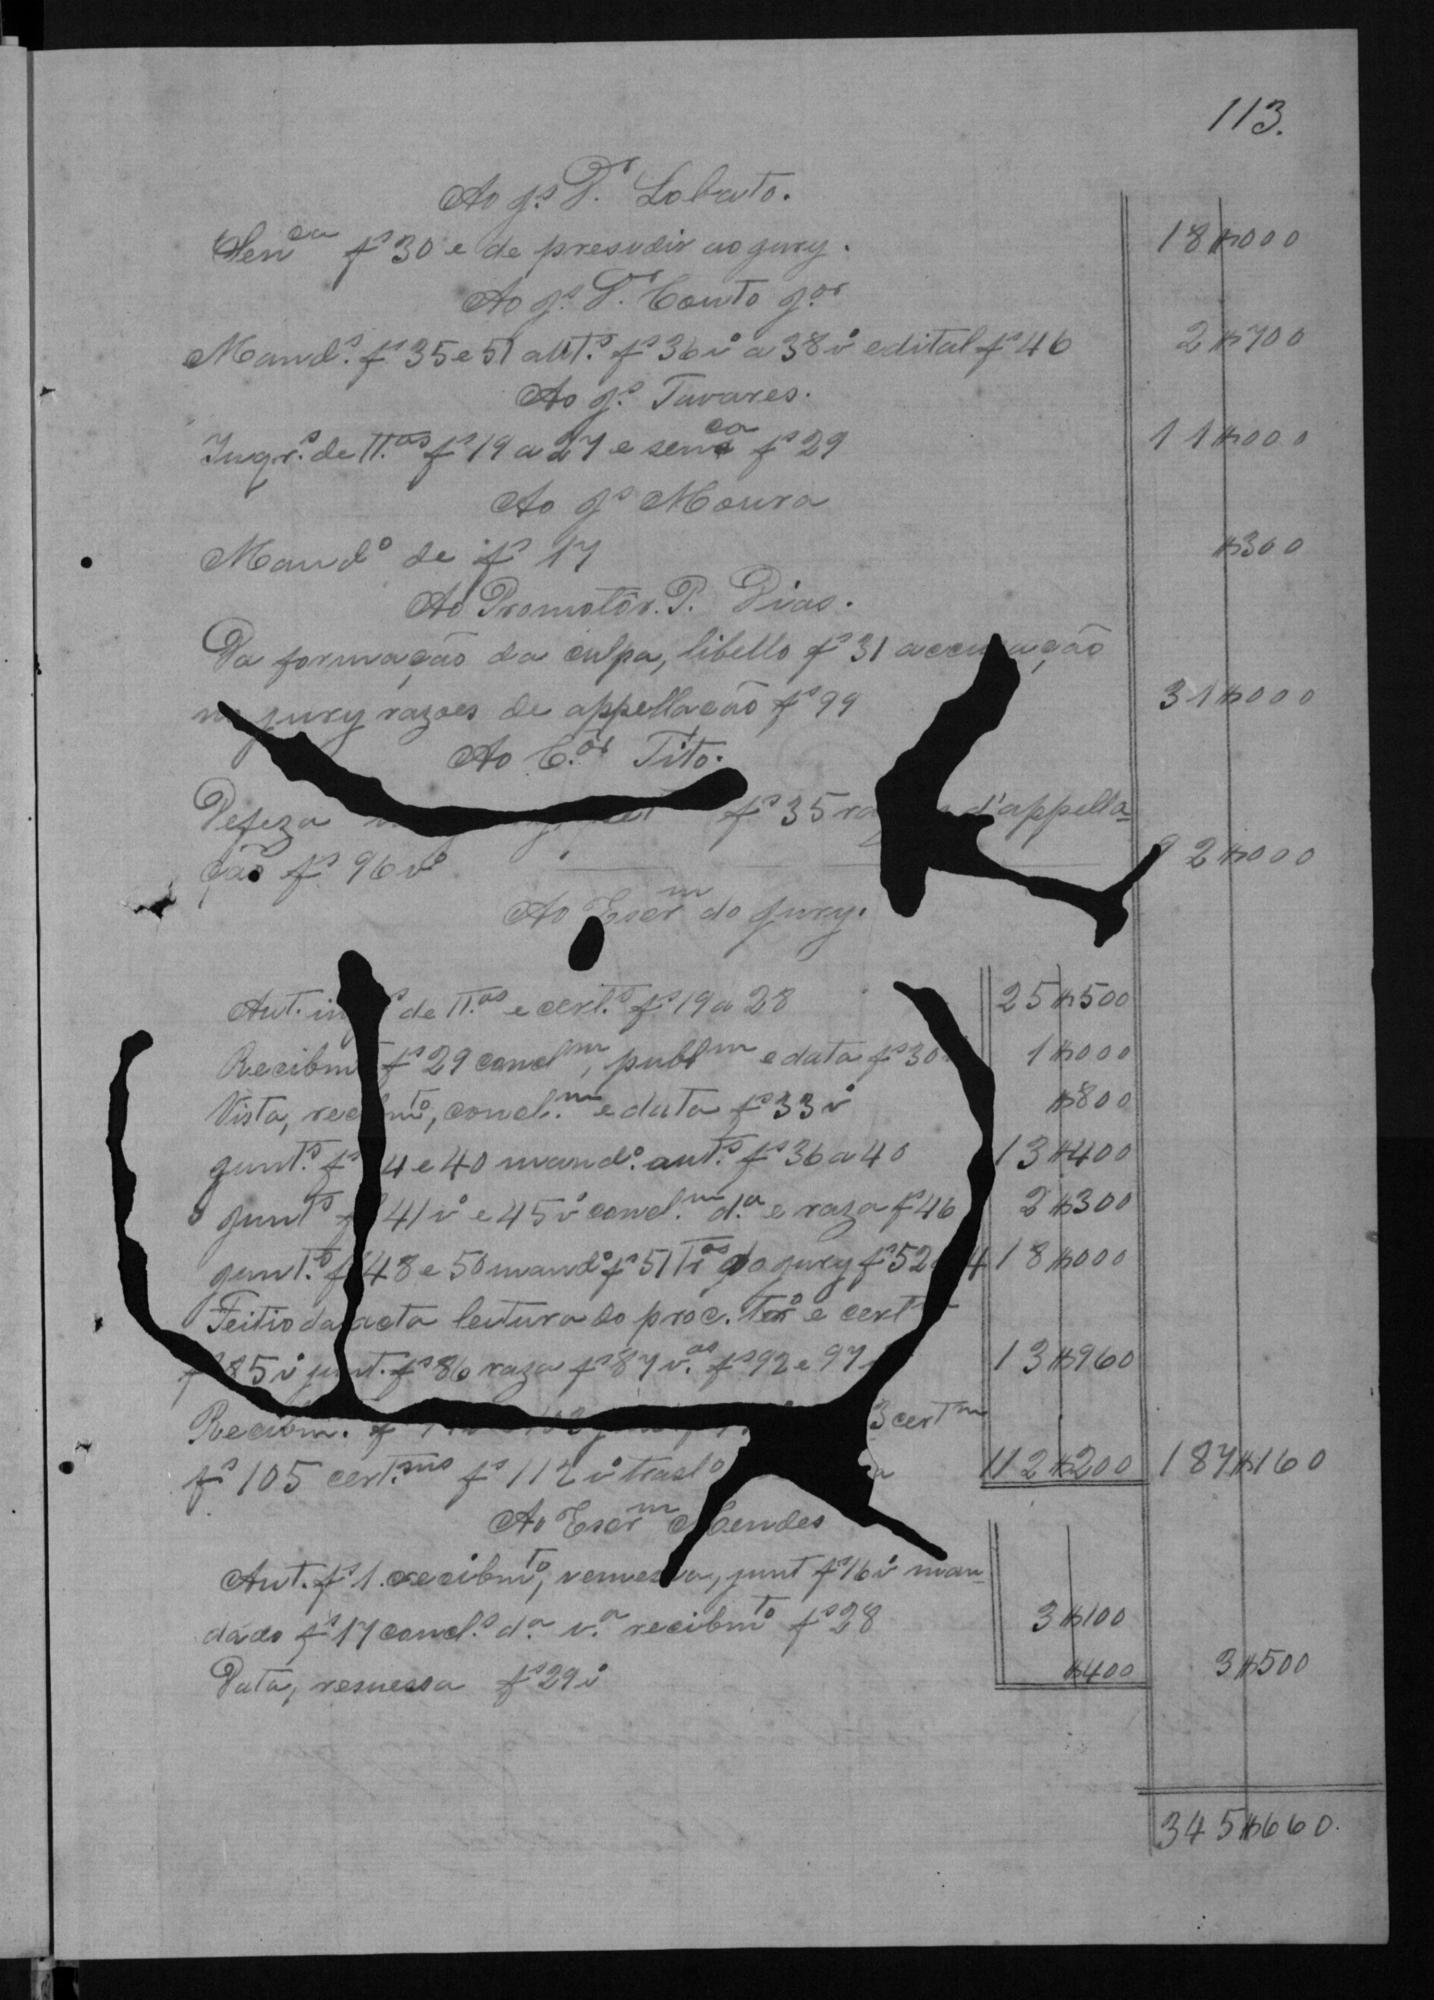 113.
Ao Js. Dr. Lobato.
Senca fs 30 e de presidir ao jury. 18$000
Ao Js. Dr. Couto Jor
Mands. fs 35 e 51 autts. fs 36 v a 38 v edital fs 46 2$700
Ao Js. Tavares.
Inqrs. de TT.as fs 19 a 27 e senca fs 29 11$000
Ao Js Moura
Mando de fs 17 $300
Ao Promotor. P. Dias.
Da formação da culpa, libello fs 31 accusação
no jury razoes de appellacão fs 99 31$000
Ao C.or Tito.
Defeza fs 35 d'appella=
ção fs 96 v 2$000
Ao Escrm do Jury.
Aut. de TT.as e cert.s fs 19 a 28 25$500
Recibmto fs 29 conclm, publm e data fs 30 1$000
Vista, recibmto, concl.m e data fs 33 v $800
Junt.s fs 4 e 40 mando. aut.s fs 36 a 40 13$400
Junts 41 v e 45 v concl.m d.a e raza fs 46 2$300
Junt.s fs 48 e 50 mando fs 51 Tros do jury fs 52 4 18$000
Feitio da acta leitura do proc. Tero e cert
fs 85 v junt. fs 86 raza fs 87 v.as fs 92 e 97 13$960
Recibm. 3 certm
fs 105 cert.ms fs 112 v traslo 112$200 187$160
Ao Escrm Mendes
Aut. fs 1. recibmto, remessa, junt fs 16 v man=
dado fs 17 concl.s d.a v.a recibmto fs 28 3$100
Data, remessa fs 29 v $400 3$500
345$660.